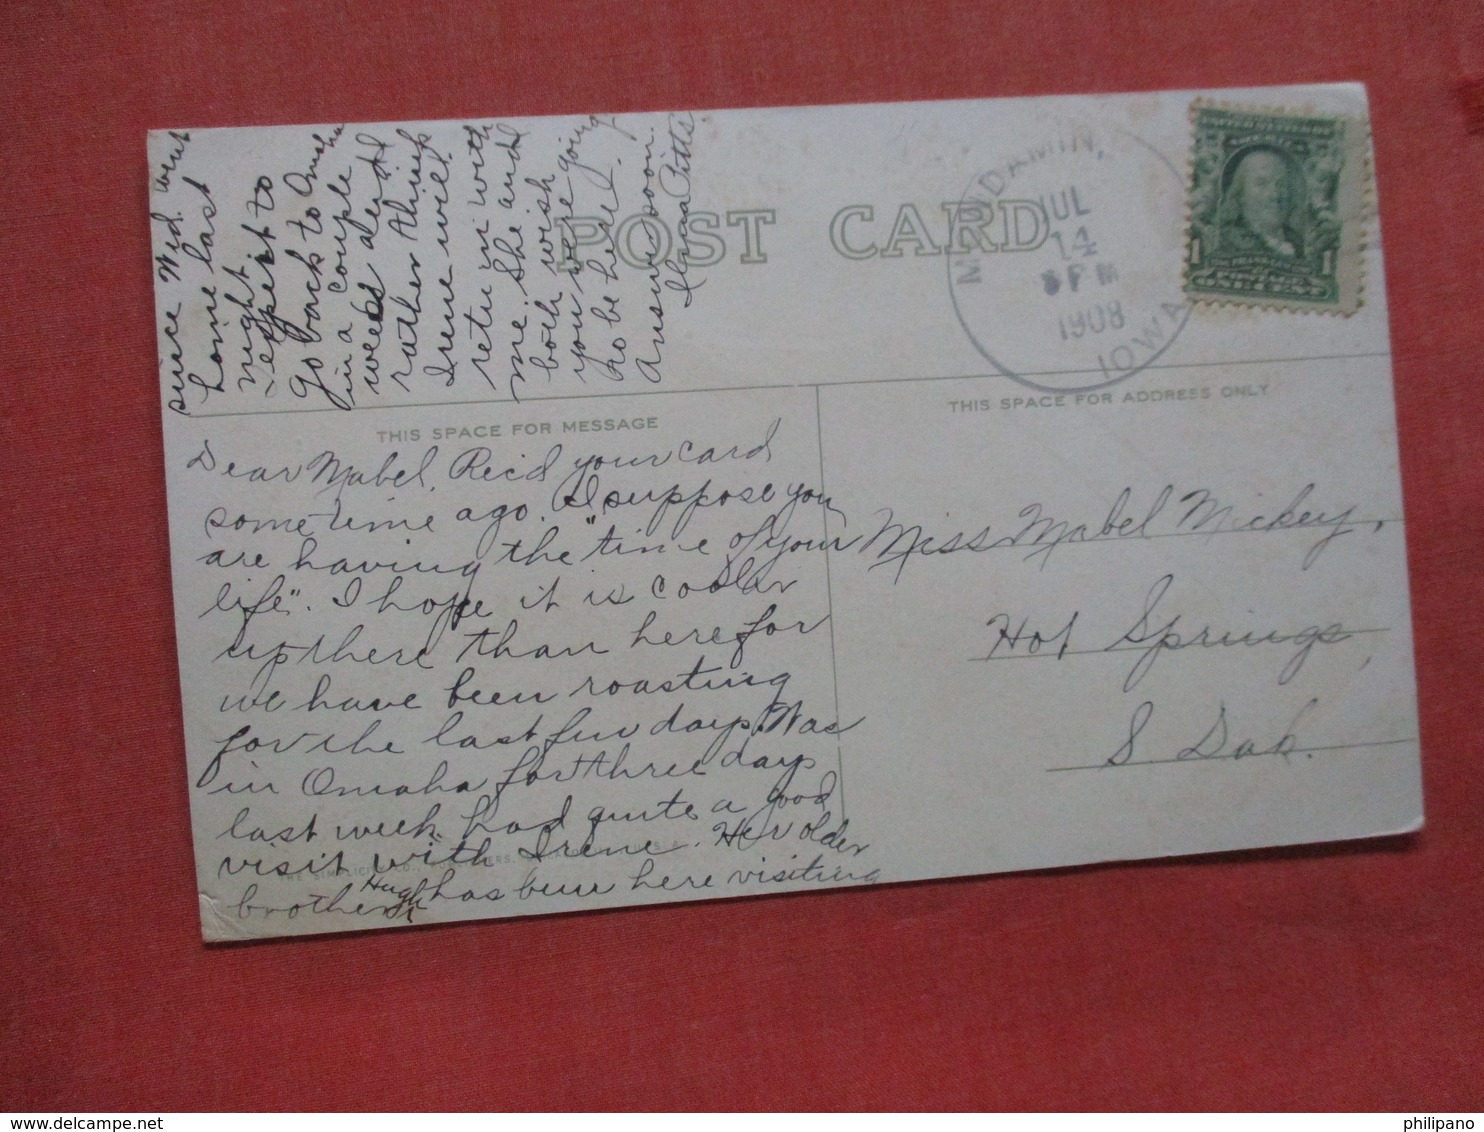 Dear Mabel, Rec'd your card
sometime ago. I suppose you
are having the "time of your
life". I hope it is cooler
up there than here for
we have been roasting
for the last few days. Was
in Omaha for three days
last week had quite a good
visit with Irene. Her older
brother Hugh has been here visiting
since Wed. went
home last
night
expect to
go back to Omaha
in a couple
weeks and
rather think
Irene will
return with
me. She and I
both wish
you were going
to be here.
Answer soon.
Irma Pitts
POST CARD
MONDAMIN,
JUL
14
PM
1908
IOWA
1 1
THIS SPACE FOR MESSAGE
THIS SPACE FOR ADDRESS ONLY
Miss Mabel Mickey,
Hot Springs,
S. Dak.
philipano